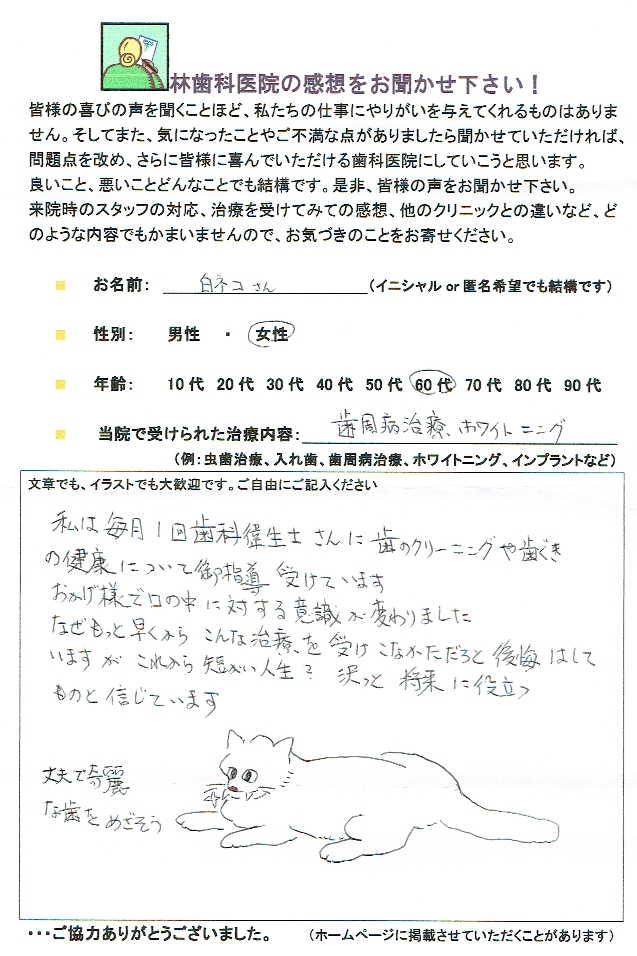 林歯科医院の感想をお聞かせ下さい！
皆様の喜びの声を聞くことほど、私たちの仕事にやりがいを与えてくれるものはありま
せん。そしてまた、気になったことやご不満な点がありましたら聞かせていただければ、
問題点を改め、さらに皆様に喜んでいただける歯科医院にしていこうと思います。
良いこと、悪いことどんなことでも結構です。是非、皆様の声をお聞かせ下さい。
来院時のスタッフの対応、治療を受けてみての感想、他のクリニックとの違いなど、ど
のような内容でもかまいませんので、お気づきのことをお寄せください。
お名前： 白ネコさん （イニシャル or 匿名希望でも結構です）
性別： 男性 ・ 女性
年齢： 10代 20代 30代 40代 50代 60代 70代 80代 90代
当院で受けられた治療内容： 歯周病治療、ホワイトニング
（例：虫歯治療、入れ歯、歯周病治療、ホワイトニング、インプラントなど）
文章でも、イラストでも大歓迎です。ご自由にご記入ください
私は毎月1回歯科衛生士さんに歯のクリーニングや歯ぐき
の健康について御指導受けています
おかげ様で口の中に対する意識が変わりました
なぜもっと早くからこんな治療を受けこなかただろと後悔はして
いますがこれから短がい人生？ 将来に役立つ
ものと信じています
丈夫で奇麗
な歯をめざそう
・・・ご協力ありがとうございました。 （ホームページに掲載させていただくことがあります）